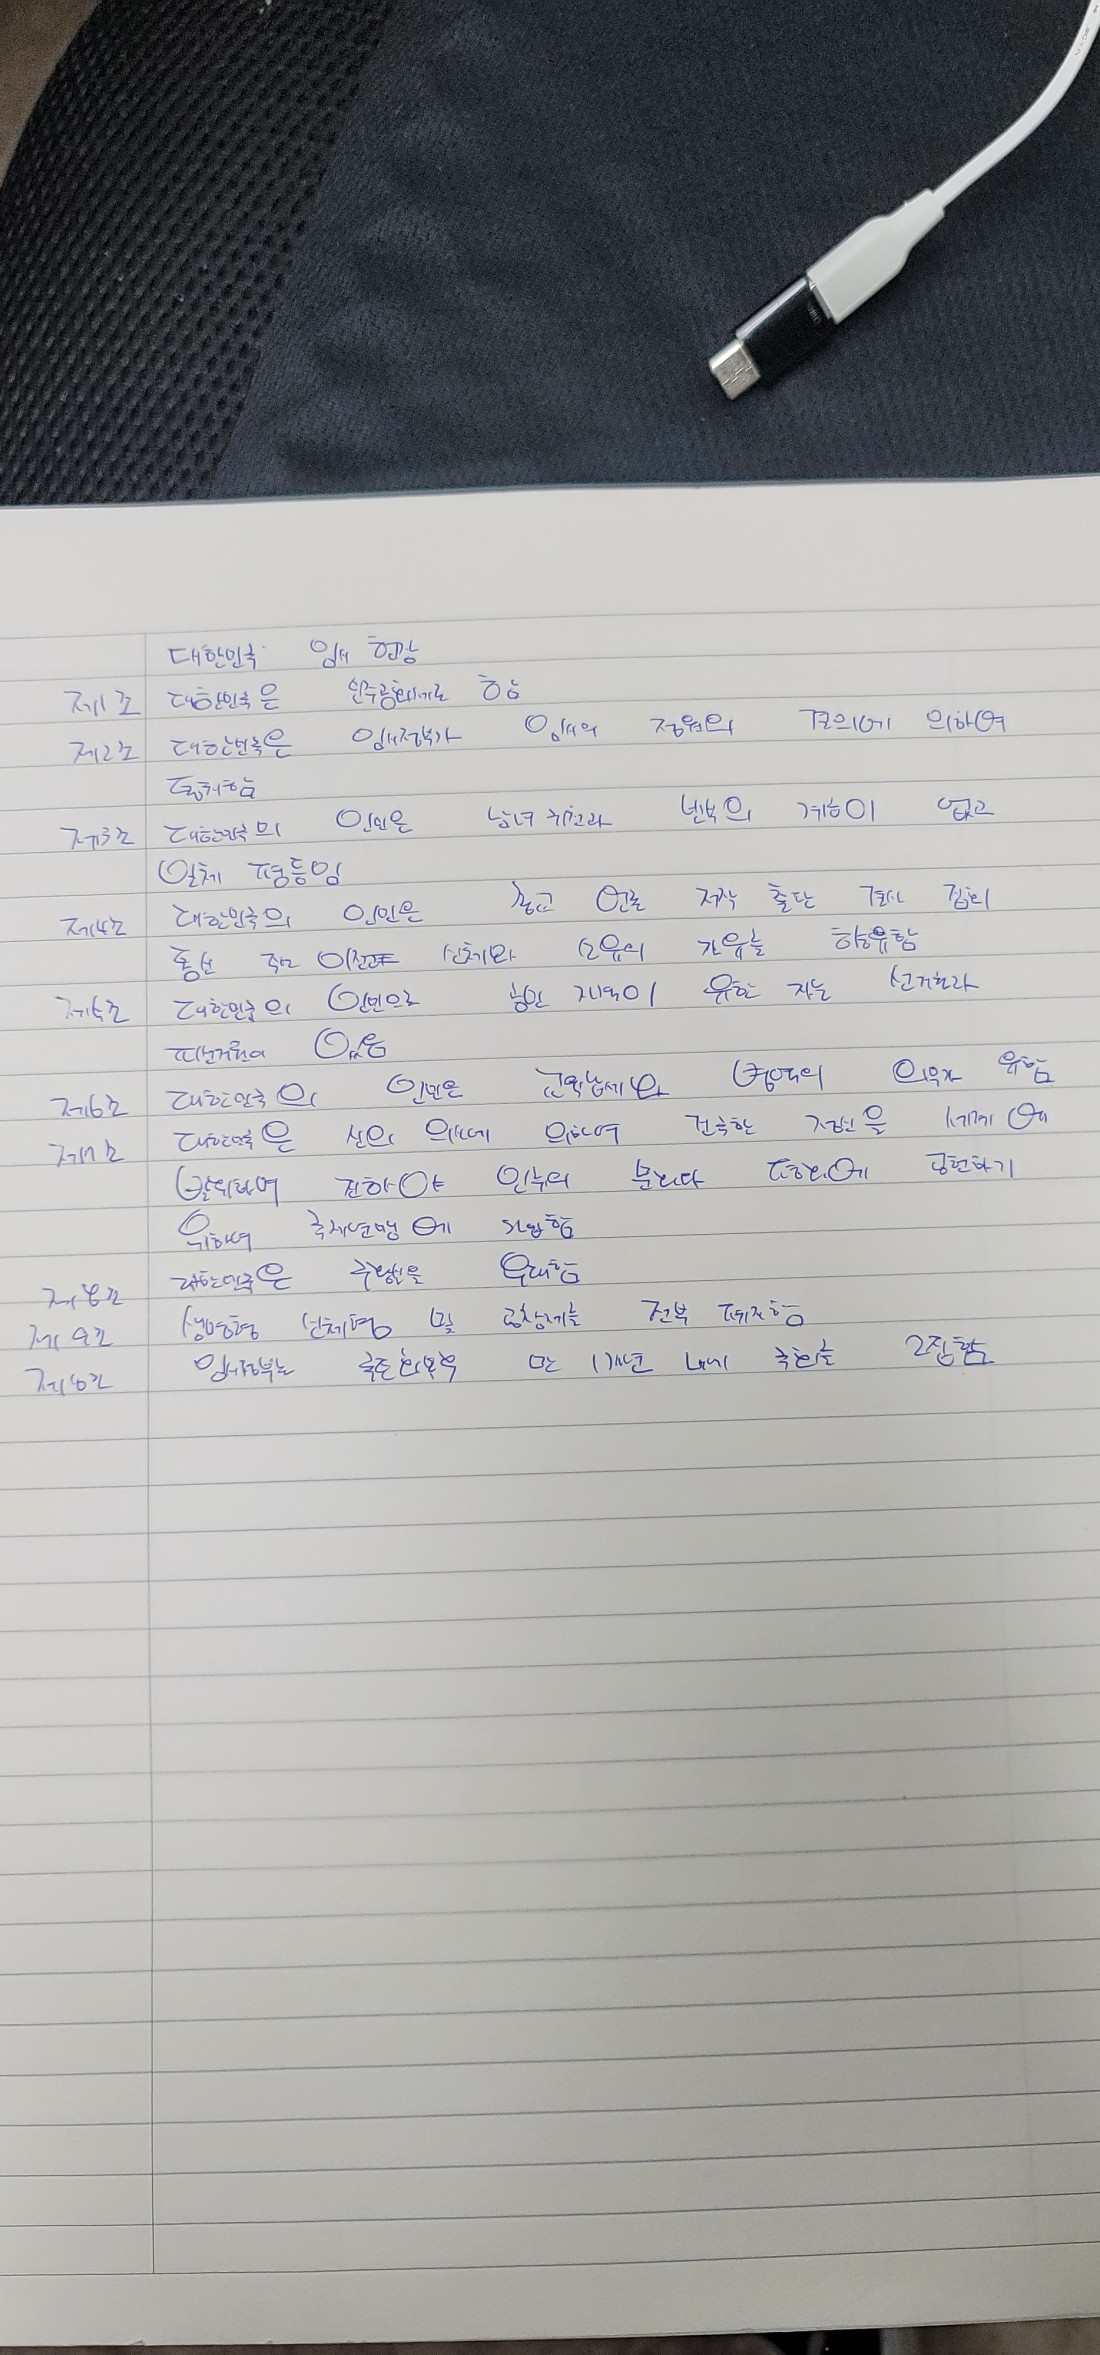 대한민국 임시 헌장
제1조 대한민국은 민주공화제로 함
제2조 대한민국은 임시정부가 임시의 정원의 결의에 의하여
통치함
제3조 대한민국의 인민은 남녀 귀천과 빈부의 계층이 없고
일체 평등임
제4조 대한민국의 인민은 종교 언론 저작 출판 결사 집회
통신 주소 이전 신체와 소유의 자유를 향유함
제5조 대한민국의 인민으로 공민 자격이 유한 자는 선거권과
피선거권이 있음
제6조 대한민국의 인민은 교육납세와 병역의 의무가 유함
제7조 대한민국은 신의 의사에 의하여 건국한 정신을 세계에
발휘하여 진하야 인류의 문화와 평화에 공헌하기
위하여 국제연맹에 가입함
제8조 대한민국은 구황실을 우대함
제9조 생명형 신체형 및 공창제를 전부 폐지함
제10조 임시정부는 국토회복후 만 1개년 내에 국회를 소집함